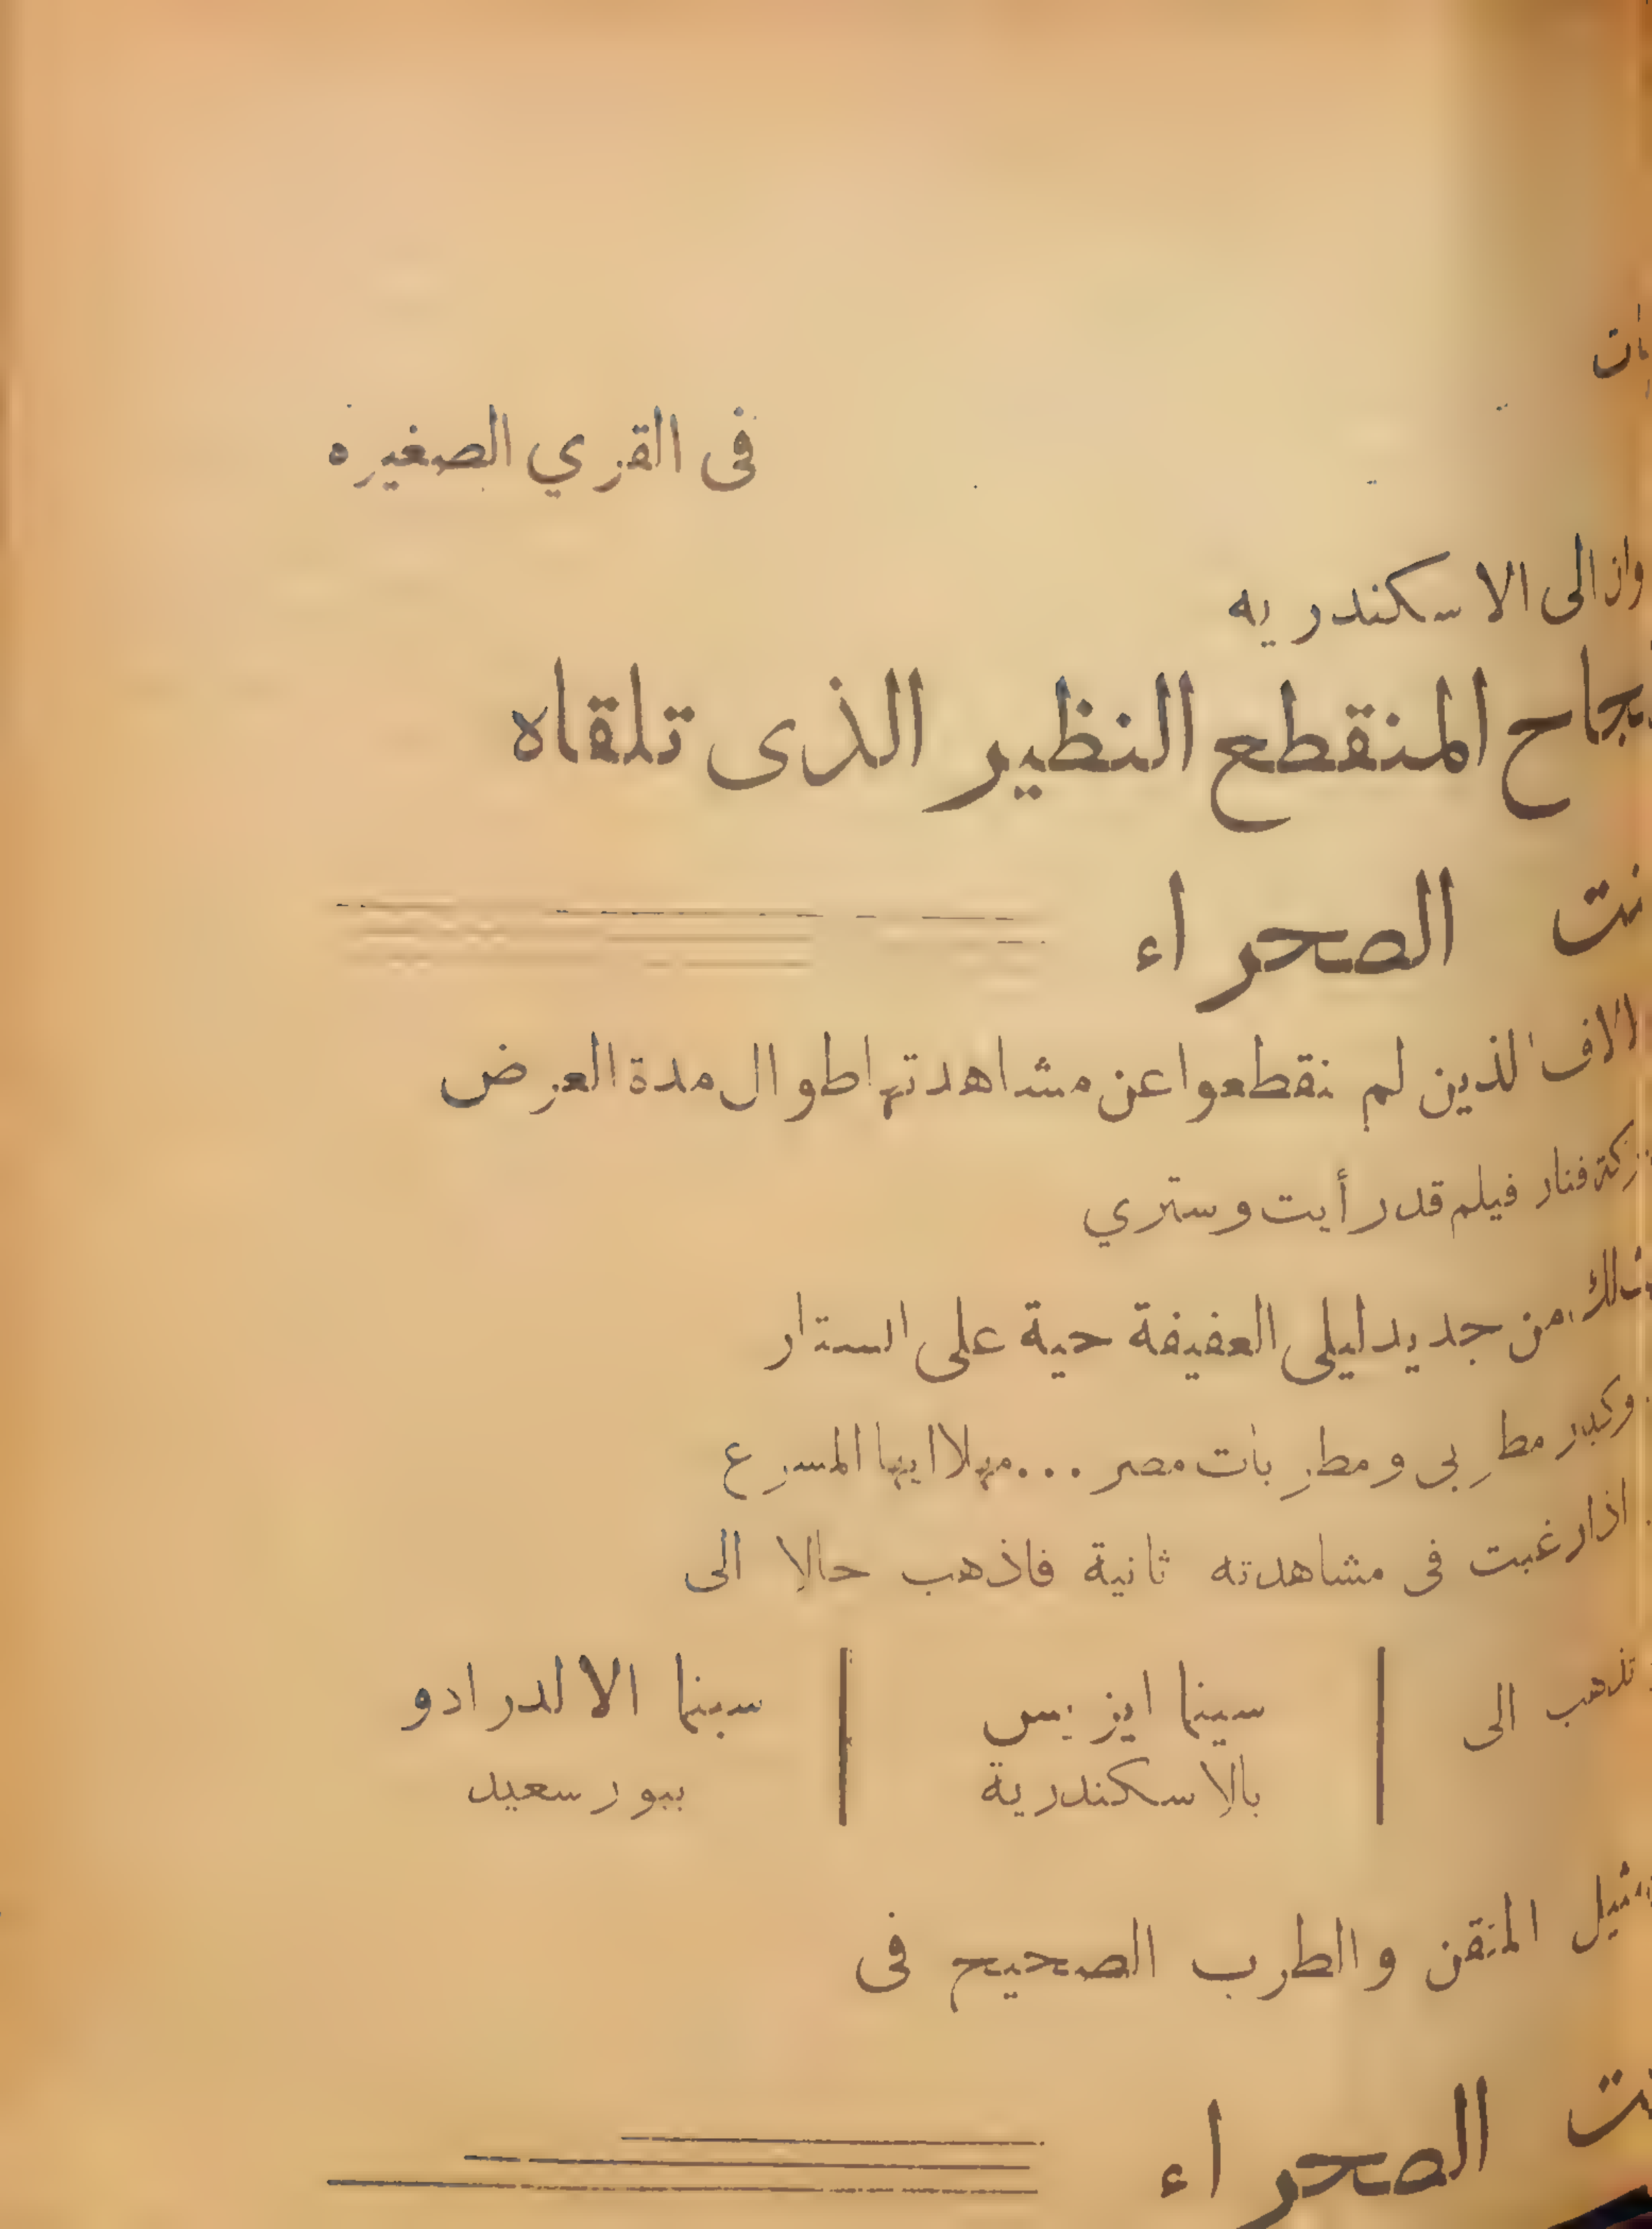 فى القري الصغيره
الى الاسكندريه
المنقطع النظير الذى تلقاه
الصحراء
الذين لم نقطعوا عن مشاهدتها طوال مدة العرض
فنار فيلم قد رأيت وستري
من جديد ليلى العفيفة حية على الستار
مطربى ومطربات مصر ... مهلا ايها المسرع
اذا رغبت فى مشاهدته ثانية فاذهب حالا الى
تذهب الى
سينما ايزيس
بالاسكندرية
سينما الالدرادو
ببور سعيد
المتقن والطرب الصحيح فى
الصحراء